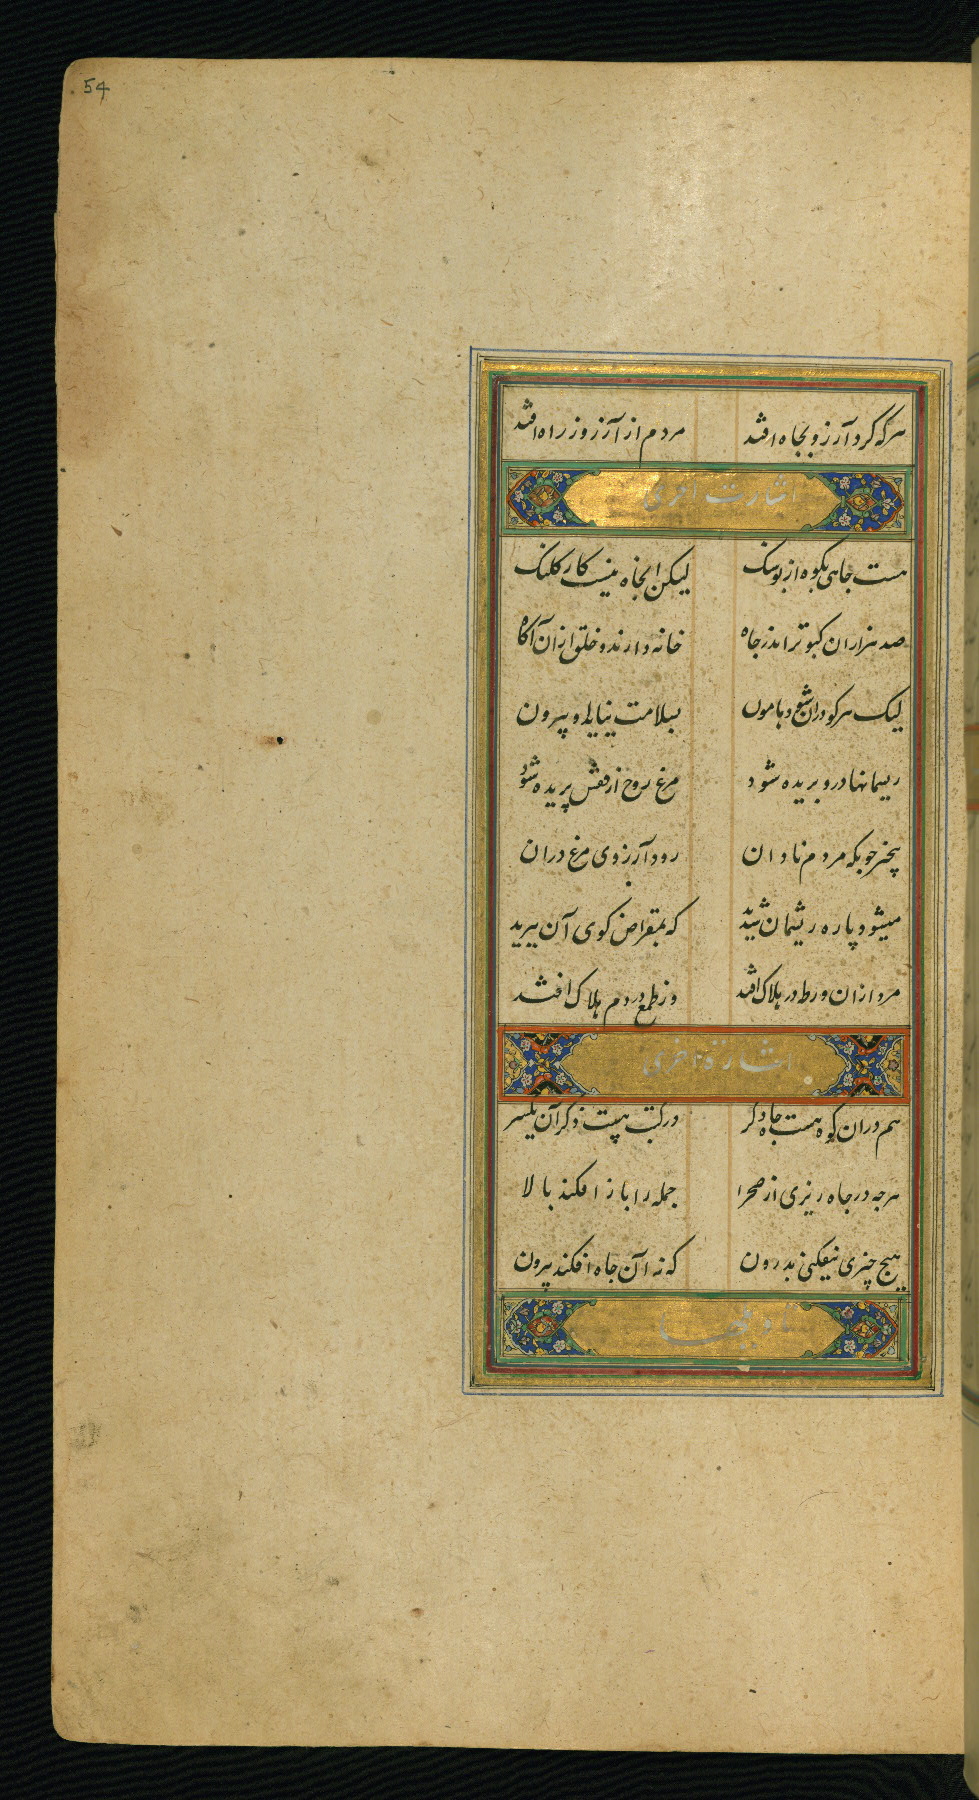 54
هرکه گرد آرزو بجاه افتد مردم از آرزو ز راه افتد
اشارت اخری
هست جاهی بکوه از بوسنک لیکن انجاه نیست کار کلنک
صد هزاران کبوتر اندر جاه خانه دارند و خلق ازان آکاه
لیک هرکو دران شود بامون بسلامت نیاید او بیرون
ریسمانها درو بریده شود مرغ روح از قفس پریده شود
مردم نادان رود آرزوی مرغ دران
میشود پاره ریسمان که بمقراض کوی آن ببرید
مرد ازان ورطه در هلاک افتد وز طمع در دم هلاک افتد
اشارة اخری
هم دران کوه هست جاه دکر در کتب هست ذکر آن یکسر
هرجه در جاه ریزی از صحرا جمله را باز افکند بالا
هیچ چیزی نیفکنی بدرون که نه آن جاه افکند بیرون